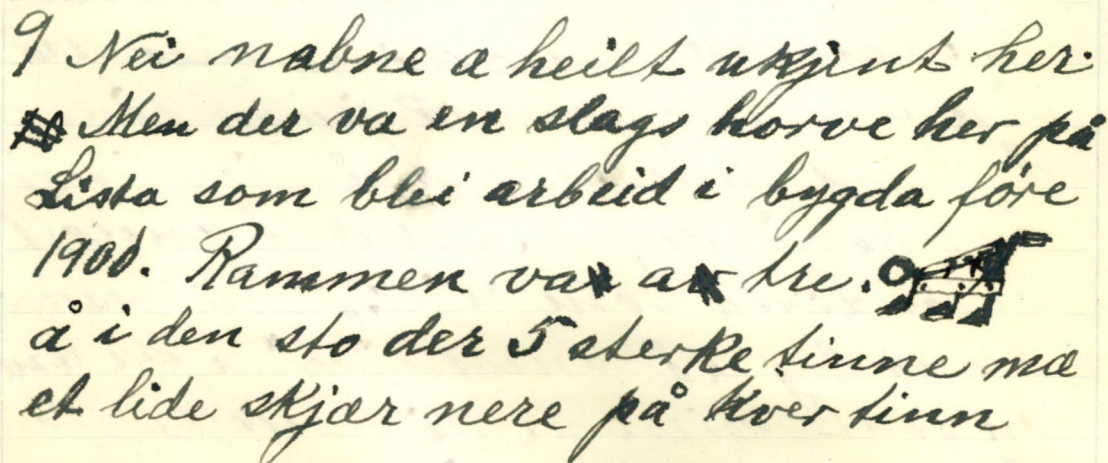 9 Nei nabne æ heilt ukjent her.
Men der va en slags horve her på
Lista som blei arbeid i bygda føre
1900. Rammen va a tre.
å i den sto der 5 sterke tinne mæ
et lide skjær nere på kver tinn